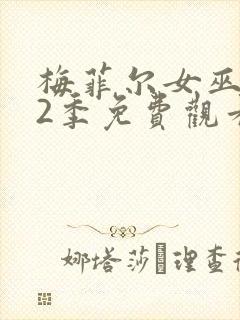 梅菲尔女巫
2季免費觀看
娜塔莎 理查